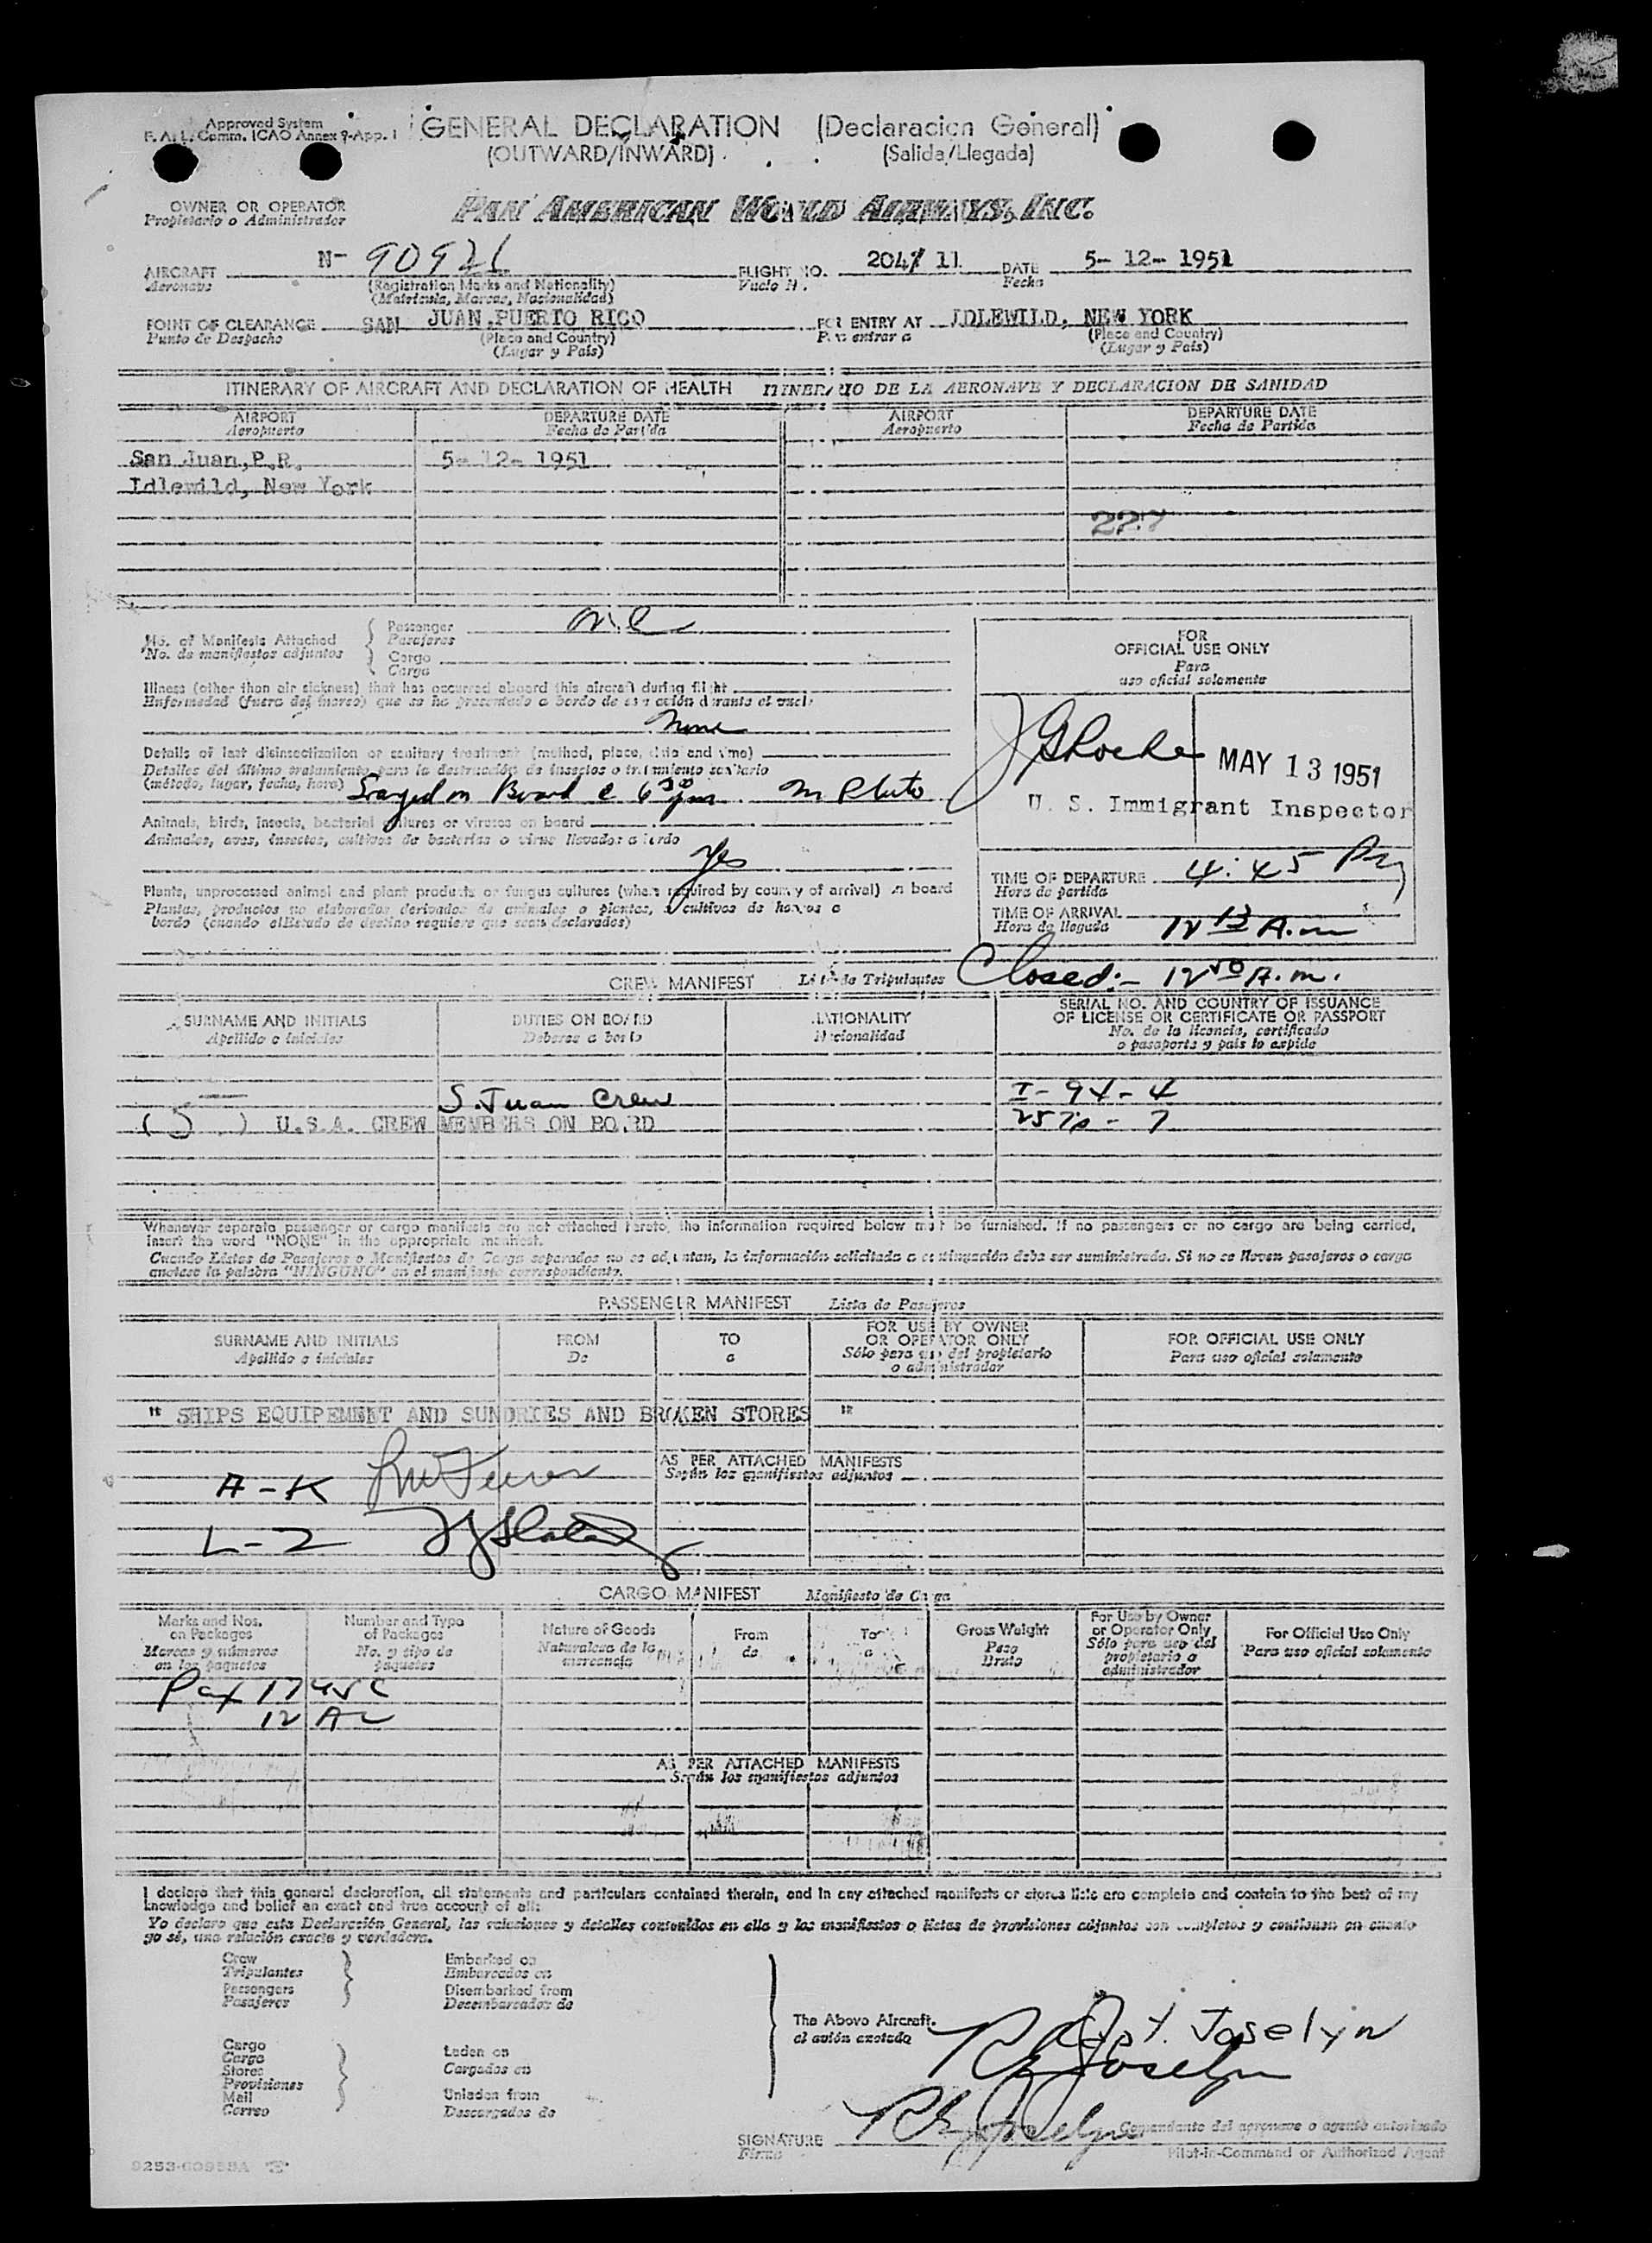 Approved System
F. A. L. Comm. ICAO Annex 9-App. 1
GENERAL DECLARATION (Declaracion General)
(OUTWARD/INWARD) (Salida/Llegada)
OWNER OR OPERATOR
Propietario o Administrador
PAN AMERICAN WORLD AIRWAYS, INC.
AIRCRAFT N- 90921 FLIGHT NO. 204/ 11 DATE 5- 12- 1951
Aeronave (Registration Marks and Nationality) Vuelo N . Fecha
(Matricula, Marcas, Nacionalidad)
POINT OF CLEARANCE SAN JUAN, PUERTO RICO FOR ENTRY AT IDLEWILD, NEW YORK
Punto de Despacho (Place and Country) Para entrar a (Place and Country)
(Lugar y País) (Lugar y País)
ITINERARY OF AIRCRAFT AND DECLARATION OF HEALTH ITINERARIO DE LA AERONAVE Y DECLARACION DE SANIDAD
AIRPORT DEPARTURE DATE AIRPORT DEPARTURE DATE
Aeropuerto Fecha de Partida Aeropuerto Fecha de Partida
San Juan,P.R. 5- 12- 1951
Idlewild, New York
227
No. of Manifests Attached
No. de manifiestos adjuntos
Passenger
Pasajeros
Cargo
Carga
Illness (other than air sickness) that has occurred aboard this aircraft during flight
Enfermedad (fuera del mareo) que se ha presentado a bordo de este avión durante el vuelo
None
Details of last disinsectization or sanitary treatment (method, place, date and time)
Detalles del último tratamiento para la destrucción de insectos o tratamiento sanitario
(método, lugar, fecha, hora) Sprayed on Board @ 6 30 pm.
Animals, birds, insects, bacterial cultures or viruses on board
Animales, aves, insectos, cultivos de bacterias o virus llevados a bordo
Yes
Plants, unprocessed animal and plant products or fungus cultures (when required by country of arrival) on board
Plantas, productos no elaborados derivados de animales o plantas, o cultivos de hongos a
bordo (cuando el Estado de destino requiere que sean declarados)
FOR
OFFICIAL USE ONLY
Para
uso oficial solamente
MAY 13 1951
U. S. Immigrant Inspector
TIME OF DEPARTURE 4:45 Pm
Hora de partida
TIME OF ARRIVAL 12 13 A.m
Hora de llegada
Closed:- 12 50 A.m.
CREW MANIFEST Lista de Tripulantes
SURNAME AND INITIALS DUTIES ON BOARD NATIONALITY SERIAL NO. AND COUNTRY OF ISSUANCE
OF LICENSE OR CERTIFICATE OR PASSPORT
Apellido e iniciales Deberes a bordo Nacionalidad No. de la licencia, certificado
o pasaporte y país lo expide
S. Juan Crew I-94-4
( 5 ) U.S.A. CREW MEMBERS ON BOARD 257a - 7
Whenever separate passenger or cargo manifests are not attached hereto, the information required below must be furnished. If no passengers or no cargo are being carried,
insert the word "NONE" in the appropriate manifest.
Cuando Listas de Pasajeros o Manifiestos de Carga separados no se adjuntan, la información solicitada a continuación debe ser suministrada. Si no se lleven pasajeros o carga
anotese la palabra "NINGUNO" en el manifiesto correspondiente.
PASSENGER MANIFEST Lista de Pasajeros
SURNAME AND INITIALS FROM TO FOR USE BY OWNER
OR OPERATOR ONLY FOR OFFICIAL USE ONLY
Apellido e iniciales De a Sólo para uso del propietario
o administrador Para uso oficial solamente
" SHIPS EQUIPEMENT AND SUNDRIES AND BROKEN STORES "
AS PER ATTACHED MANIFESTS
Según los manifiestos adjuntos
A-K
L-Z
CARGO MANIFEST Manifiesto de Carga
Marks and Nos.
on Packages
Marcas y números
en los paquetes
Number and Type
of Packages
No. y tipo de
paquetes
Nature of Goods
Naturaleza de la
mercancía
From
de
To
a
Gross Weight
Peso
Bruto
For Use by Owner
or Operator Only
Sólo para uso del
propietario o
administrador
For Official Use Only
Para uso oficial solamente
Pax 17 USC
12 AL
AS PER ATTACHED MANIFESTS
Según los manifiestos adjuntos
I declare that this general declaration, all statements and particulars contained therein, and in any attached manifests or stores lists are complete and contain to the best of my
knowledge and belief an exact and true account of all:
Yo declaro que esta Declaración General, las relaciones y detalles contenidos en ella y los manifiestos o listas de provisiones adjuntos son completos y contienen en cuanto
yo sé, una relación exacta y verdadera.
Crew
Tripulantes
Passengers
Pasajeros
Embarked on
Embarcados en
Disembarked from
Desembarcados de
Cargo
Carga
Stores
Provisiones
Mail
Correo
Laden on
Cargados en
Unladen from
Descargados de
The Above Aircraft.
el avión anotado
Capt. Joselyn
R Joselyn
SIGNATURE
Firma
Comandante del aeronave o agente autorizado
Pilot-in-Command or Authorized Agent